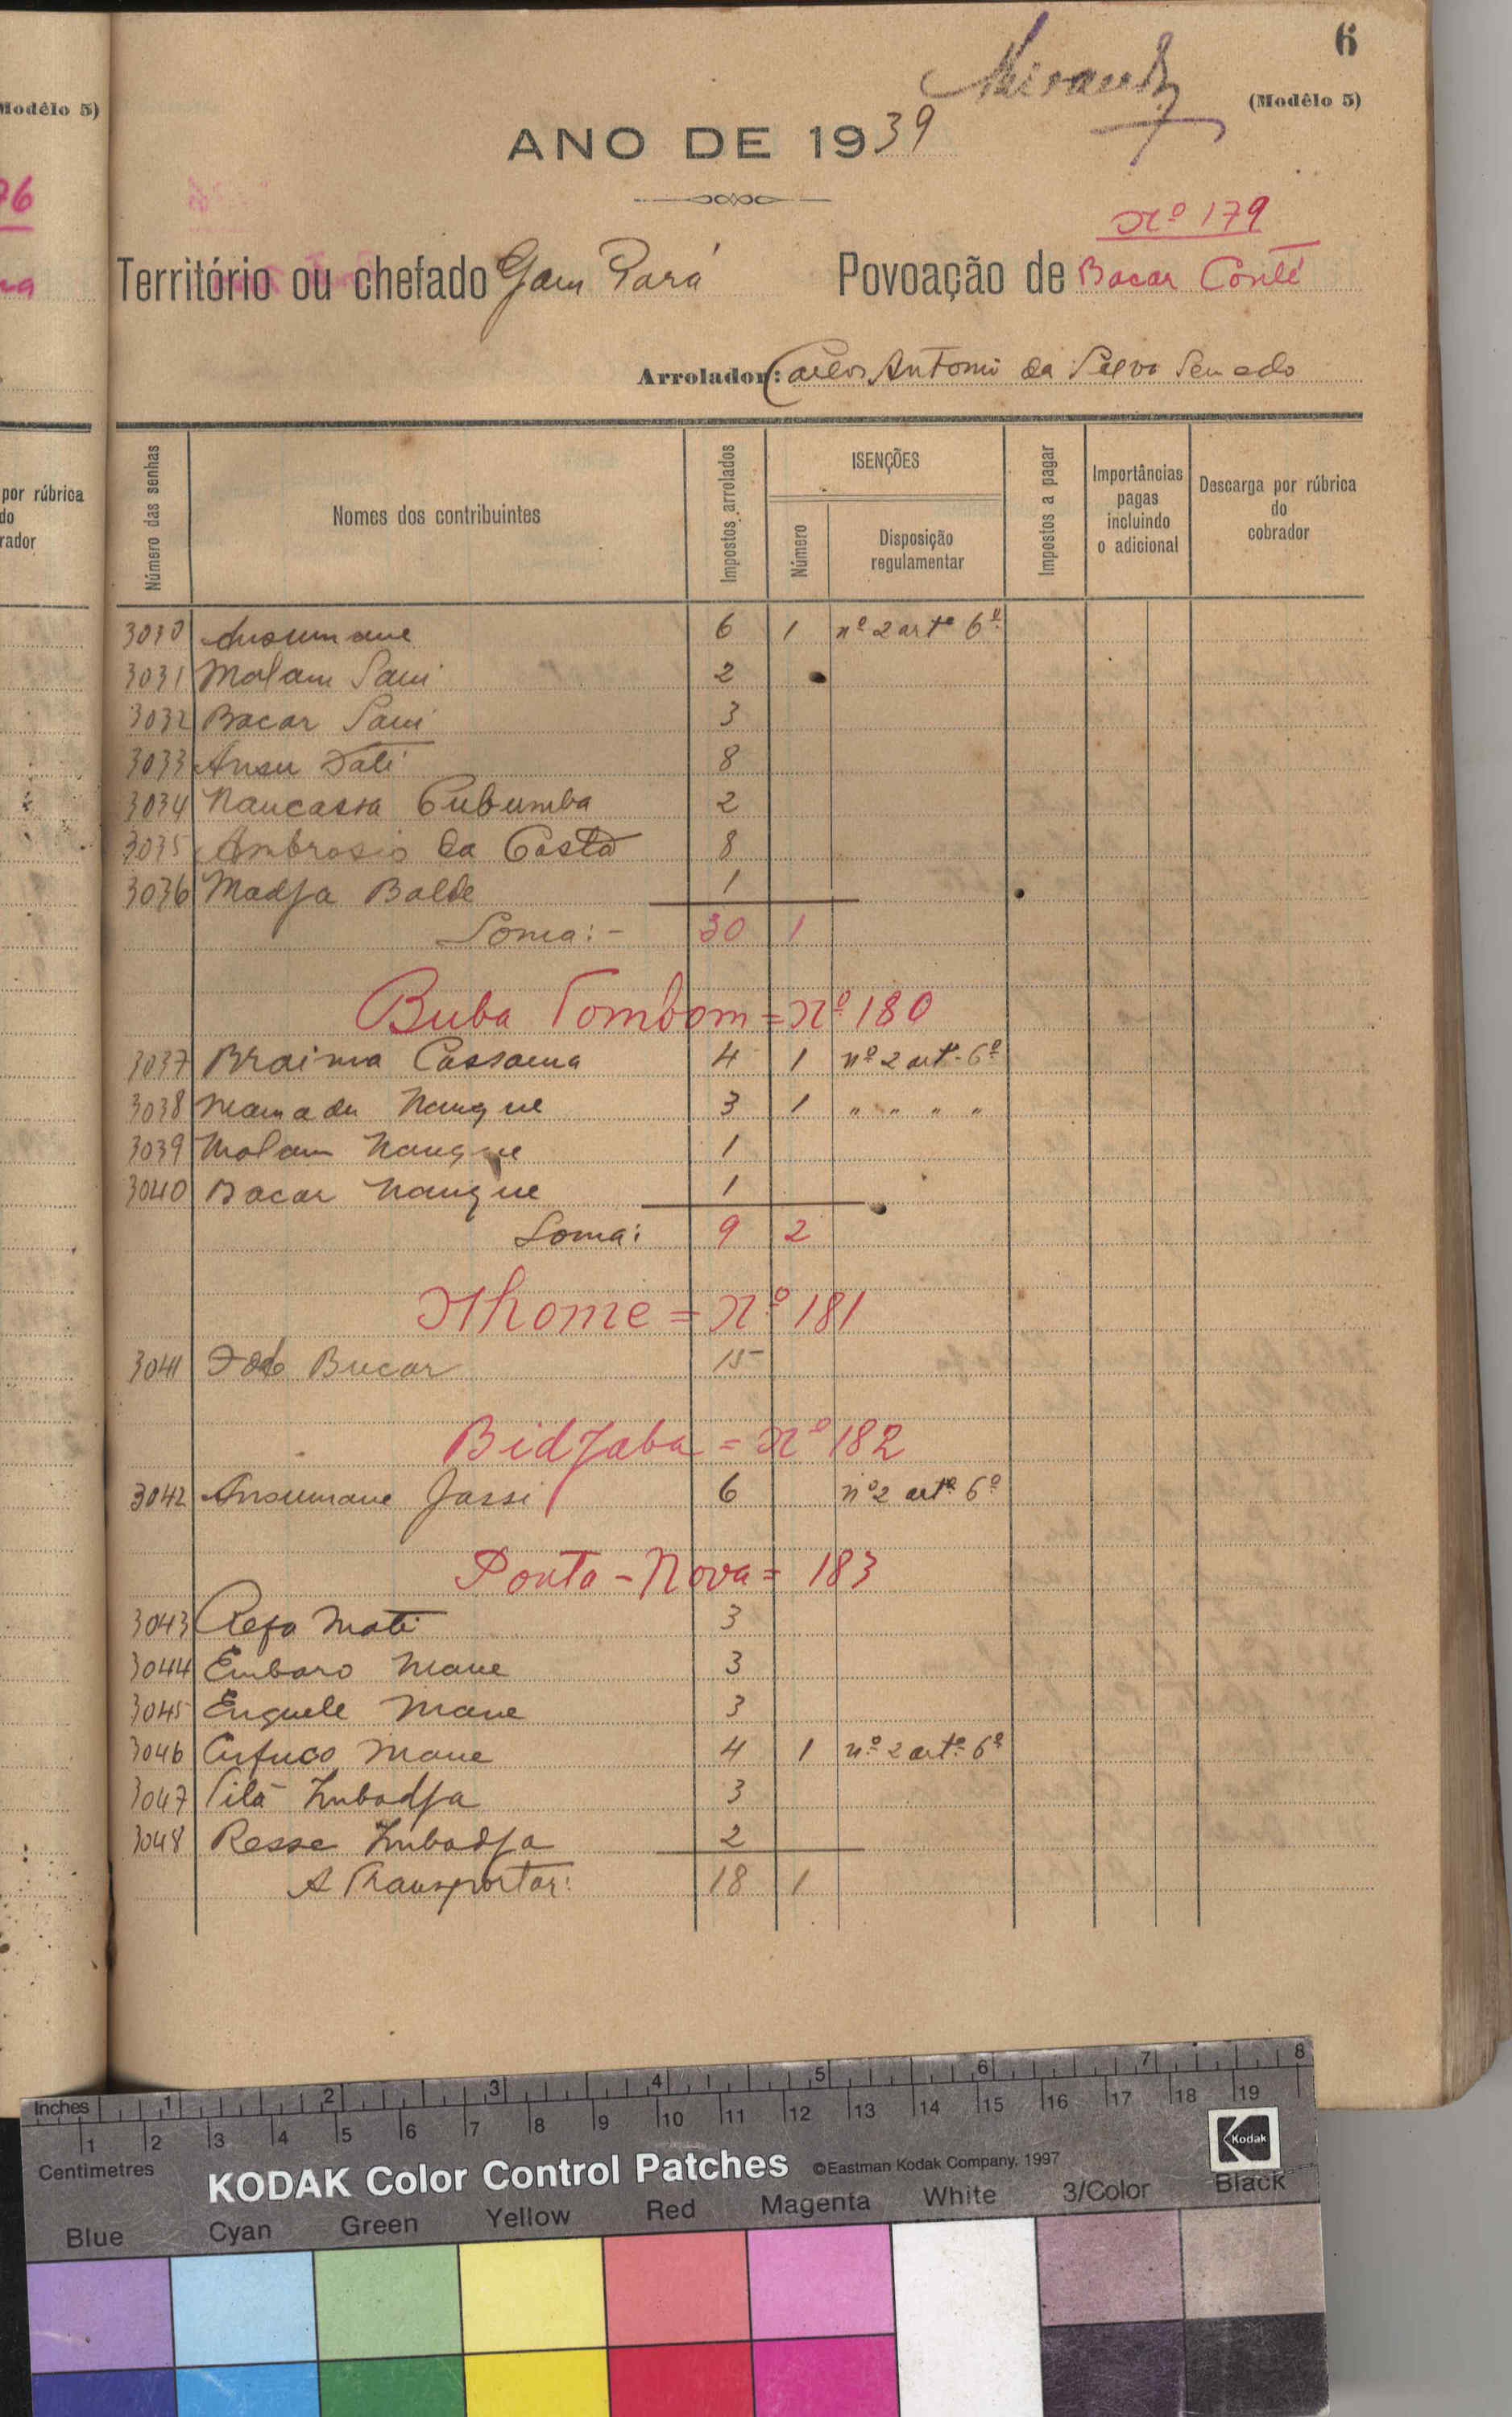 6
(Modêlo 5)
ANO DE 1939
Nº 179
Território ou chefado Gam Pará Povoação de Bacar Conté
Arrolador: Carlos Antonio da Silva
Número das senhas
Nomes dos contribuintes
Impostos arrolados
ISENÇÕES
Número
Disposição regulamentar
Impostos a pagar
Importâncias pagas incluindo o adicional
Descarga por rúbrica do cobrador
3030 Ansumane 6 1 nº 2 artº 6º
3031 Malam Sani 2
3032 Bacar Sani 3
3033 Ansu Dabé 8
3034 Nancassa Cubumba 2
3035 Ambrosio da Costa 8
3036 Madja Balde 1
Soma:- 30 1
Buba Tombom = Nº 180
3037 Braima Cassama 4 1 nº 2 artº 6º
3038 Mamadu Nanque 3 1 " " " "
3039 Malam Nanque 1
3040 Bacar Nanque 1
Soma: 9 2
Nhome = Nº 181
3041 Bucar 15
Bidjaba = Nº 182
3042 Ansumane Jassi 6 nº 2 artº 6º
Ponta-Nova = 183
3043 Refa Mati 3
3044 Embaro Mane 3
3045 Enquele Mane 3
3046 Cufuco Mane 4 1 nº 2 artº 6º
3047 3
3048 Resse 2
A Transportar: 18 1
Modêlo 5)
76
na
por rúbrica
do
rador
Inches 1 2 3 4 5 6 7 8
1 2 3 4 5 6 7 8 9 10 11 12 13 14 15 16 17 18 19
Centimetres
KODAK Color Control Patches ©Eastman Kodak Company, 1997 Kodak
Blue Cyan Green Yellow Red Magenta White 3/Color Black